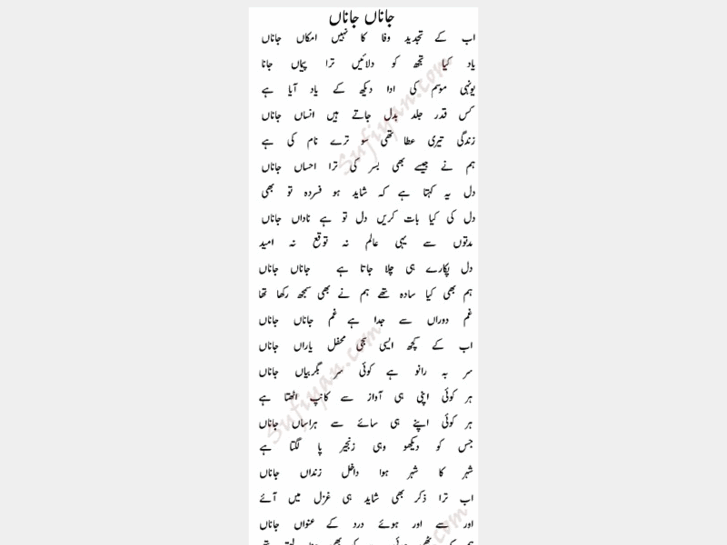 جاناں جاناں
اب کے تجدید وفا کا نہیں امکاں جاناں
یاد کیا تجھ کو دلائیں ترا پیماں جانا
یونہی موسم کی ادا دیکھ کے یاد آیا ہے
کس قدر جلد بدل جاتے ہیں انساں جاناں
زندگی تیری عطا تھی سو ترے نام کی ہے
ہم نے جیسے بھی بسر کی ترا احساں جاناں
دل یہ کہتا ہے کہ شاید ہو فسردہ تو بھی
دل کی کیا بات کریں دل تو ہے ناداں جاناں
مدتوں سے یہی عالم نہ توقع نہ امید
دل پکارے ہی چلا جاتا ہے جاناں جاناں
ہم بھی کیا سادہ تھے ہم نے بھی سمجھ رکھا تھا
غم دوراں سے جدا ہے غم جاناں جاناں
اب کے کچھ ایسی سجی محفل یاراں جاناں
سر بہ زانو ہے کوئی سر بگریباں جاناں
ہر کوئی اپنی ہی آواز سے کانپ اٹھتا ہے
ہر کوئی اپنے ہی سائے سے ہراساں جاناں
جس کو دیکھو وہی زنجیر پا لگتا ہے
شہر کا شہر ہوا داخل زنداں جاناں
اب ترا ذکر بھی شاید ہی غزل میں آئے
اور سے اور ہوئے درد کے عنواں جاناں
Sufiyan.com
Sufiyan.com